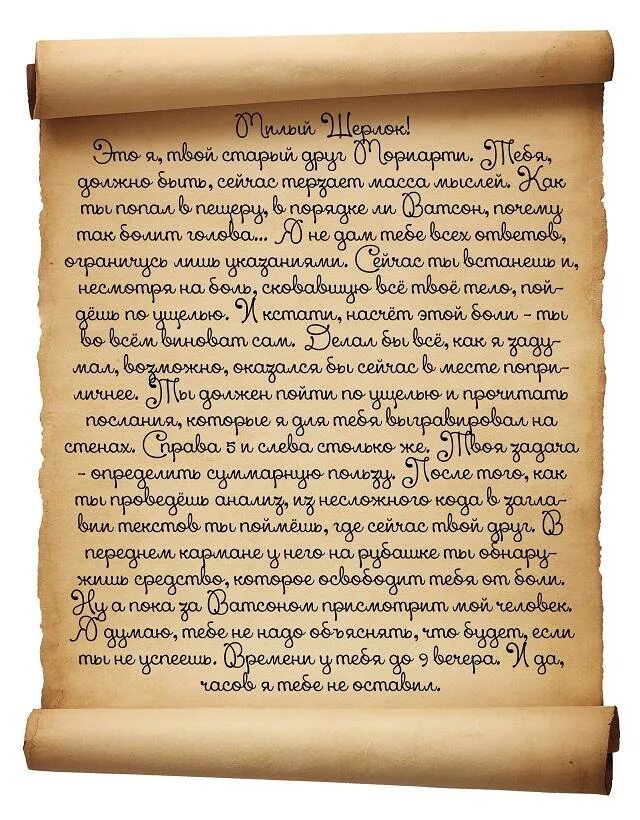 Милый Шерлок!
Это я, твой старый друг Мориарти. Тебя,
должно быть, сейчас терзает масса мыслей. Как
ты попал в пещеру, в порядке ли Ватсон, почему
так болит голова... Я не дам тебе всех ответов,
ограничусь лишь указаниями. Сейчас ты встанешь и,
несмотря на боль, сковавшую всё твоё тело, пой-
дёшь по ущелью. И кстати, насчёт этой боли - ты
во всём виноват сам. Делал бы всё, как я заду-
мал, возможно, оказался бы сейчас в месте попри-
личнее. Ты должен пойти по ущелью и прочитать
послания, которые я для тебя выгравировал на
стенах. Справа 5 и слева столько же. Твоя задача
- определить суммарную пользу. После того, как
ты проведёшь анализ, из несложного кода в загла-
вии текстов ты поймёшь, где сейчас твой друг. В
переднем кармане у него на рубашке ты обнару-
жишь средство, которое освободит тебя от боли.
Ну а пока за Ватсоном присмотрит мой человек.
Я думаю, тебе не надо объяснять, что будет, если
ты не успеешь. Времени у тебя до 9 вечера. И да,
часов я тебе не оставил.